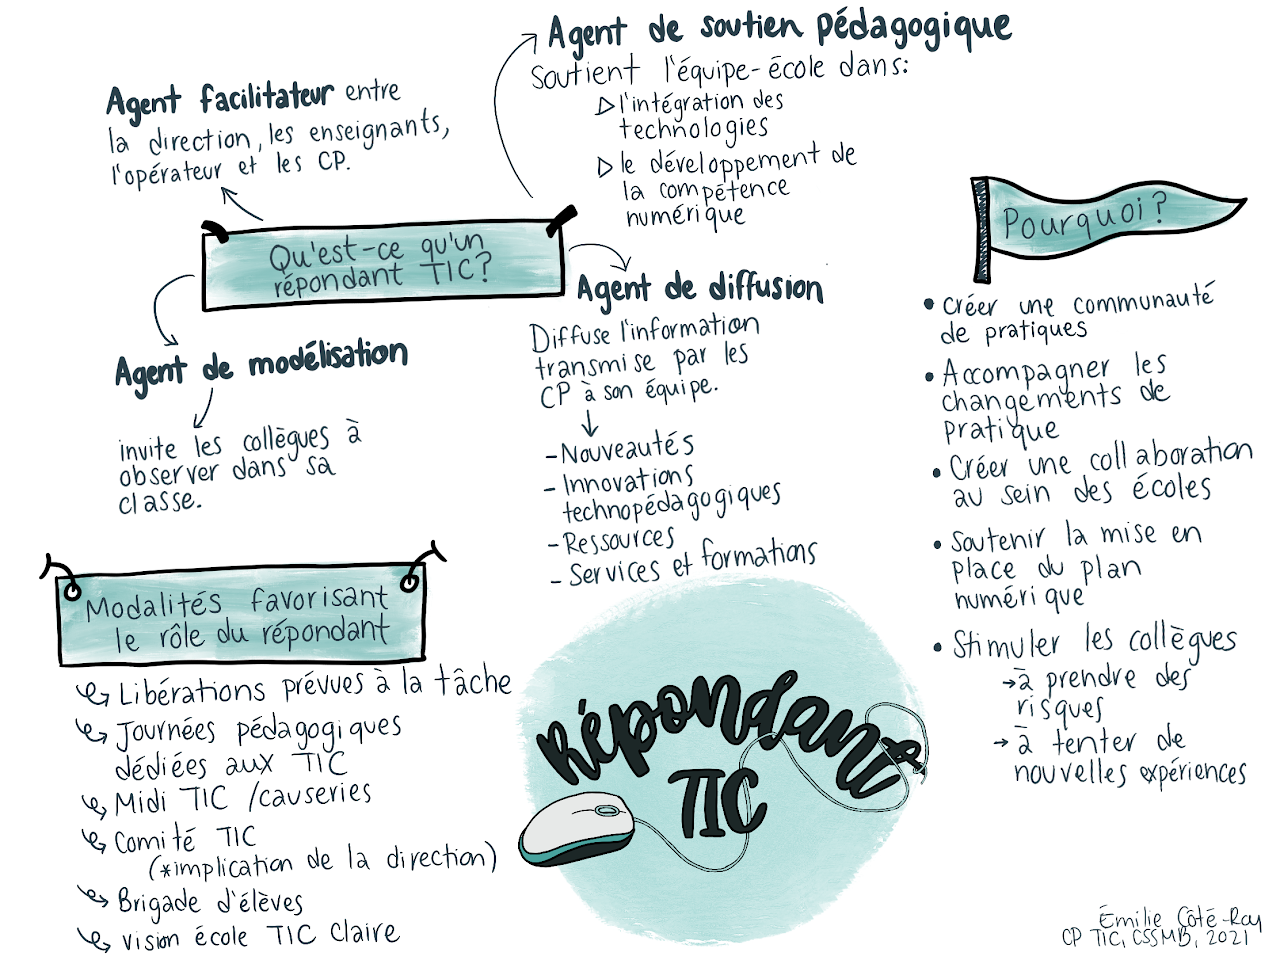 Agent de soutien pédagogique
Soutient l'équipe-école dans:
▷ l'intégration des
technologies
▷ le développement de
la compétence
numérique
Agent facilitateur entre
la direction, les enseignants,
l'opérateur et les CP.
Qu'est-ce qu'un
répondant TIC?
Agent de modélisation
invite les collègues à
observer dans sa
classe.
Agent de diffusion
Diffuse l'information
transmise par les
CP à son équipe.
- Nouveautés
- Innovations
technopédagogiques
- Ressources
- Services et formations
Pourquoi?
• Créer une communauté
de pratiques
• Accompagner les
changements de
pratique
• Créer une collaboration
au sein des écoles
• Soutenir la mise en
place du plan
numérique
• Stimuler les collègues
→ à prendre des
risques
→ à tenter de
nouvelles expériences
Modalités favorisant
le rôle du répondant
Libérations prévues à la tâche
Journées pédagogiques
dédiées aux TIC
Midi TIC /causeries
Comité TIC
(*implication de la direction)
Brigade d'élèves
vision école TIC claire
Répondant
TIC
Émilie Côté-Roy
CP TIC, CSSMB, 2021